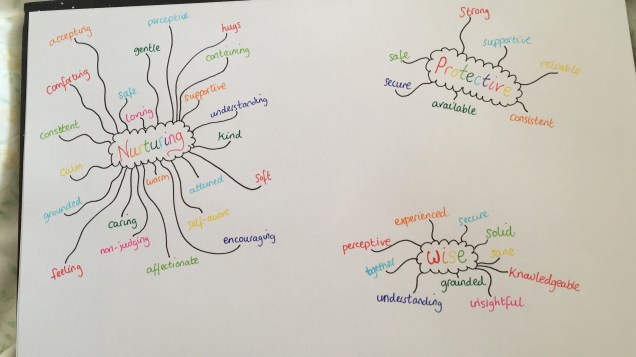 perceptive
accepting
hugs
gentle
containing
comforting
safe
supportive
loving
understanding
consistent
Nurturing
kind
calm
warm
attuned
soft
grounded
caring
self-aware
non-judging
encouraging
feeling
affectionate
Strong
supportive
safe
Protective
reliable
secure
available
consistent
experienced
secure
solid
perceptive
wise
sane
together
Knowledgeable
grounded
understanding
insightful